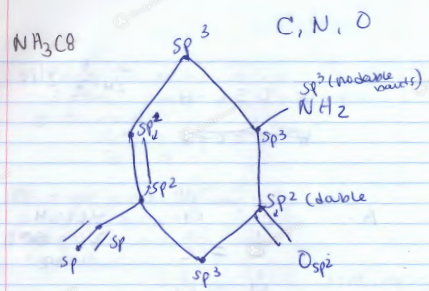 C, N, O
NH3C8
sp3
sp3 (no double bonds)
NH2
sp2
sp3
sp2
sp2 (double
sp
sp
sp3
Osp2